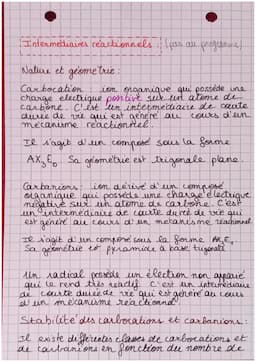 Intermédiaires réactionnels : (pas au programme)
Nature et géométrie :
Carbocation : ion organique qui possède une
charge électrique positive sur un atome de
carbone. C'est un intermédiaire de courte
durée de vie qui est généré au cours d'un
mécanisme réactionnel.
Il s'agit d'un composé sous la forme
AX₃E₀ Sa géométrie est trigonale plane.
Carbanions : ion dérivé d'un composé
organique qui possède une charge électrique
négative sur un atome de carbone. C'est
un intermédiaire de courte durée de vie qui
est généré au cours d'un mécanisme réactionnel
Il s'agit d'un composé sous la forme AX₃E₁
Sa géométrie est pyramide à base trigonale
Un radical possède un électron non apparié
qui le rend très réactif. C'est un intermédiaire
de courte durée de vie qui est généré au cours
d'un mécanisme réactionnel
Stabilité des carbocations et carbanions :
Il existe différentes classes de carbocations et
de carbanions en fonction du nombre de